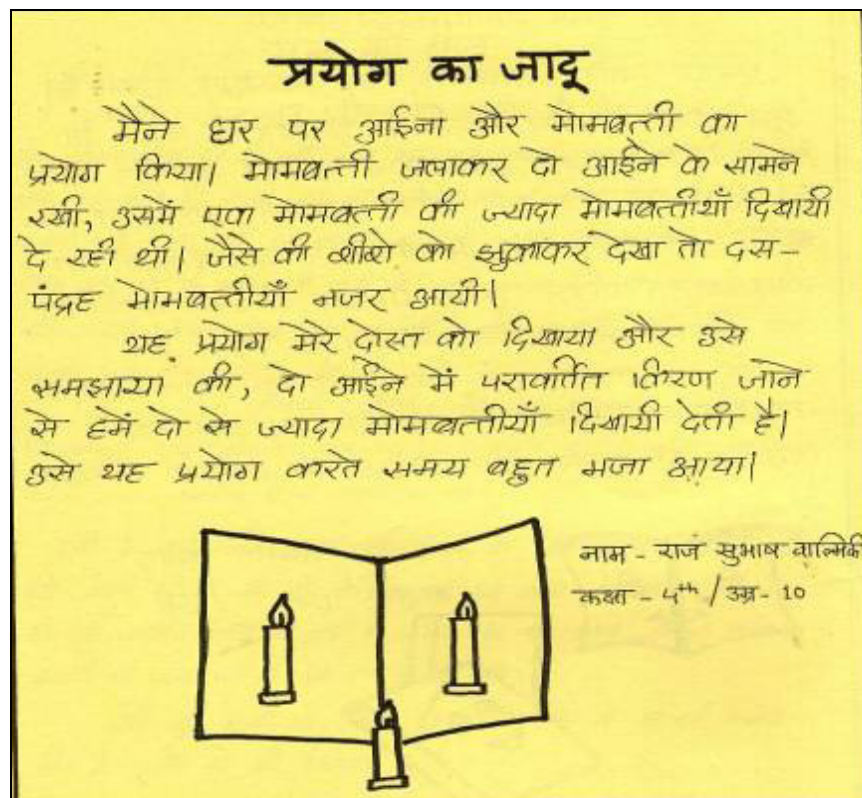 प्रयोग का जादू
मैने घर पर आईना और मोमबत्ती का
प्रयोग किया। मोमबत्ती जलाकर दो आईने के सामने
रखी, उसमें एक मोमबत्ती की ज्यादा मोमबत्तीयाँ दिखायी
दे रही थी। जैसे की शीशे को झुकाकर देखा तो दस-
पंद्रह मोमबत्तीयाँ नजर आयी।
यह प्रयोग मेरे दोस्त को दिखाया और उसे
समझाया की, दो आईने में परावर्तित किरण जाने
से हमें दो से ज्यादा मोमबत्तीयाँ दिखायी देती है।
उसे यह प्रयोग करते समय बहुत मजा आया।
नाम - राज सुभाष वाल्मिकी
कक्षा - 4th / उम्र - 10